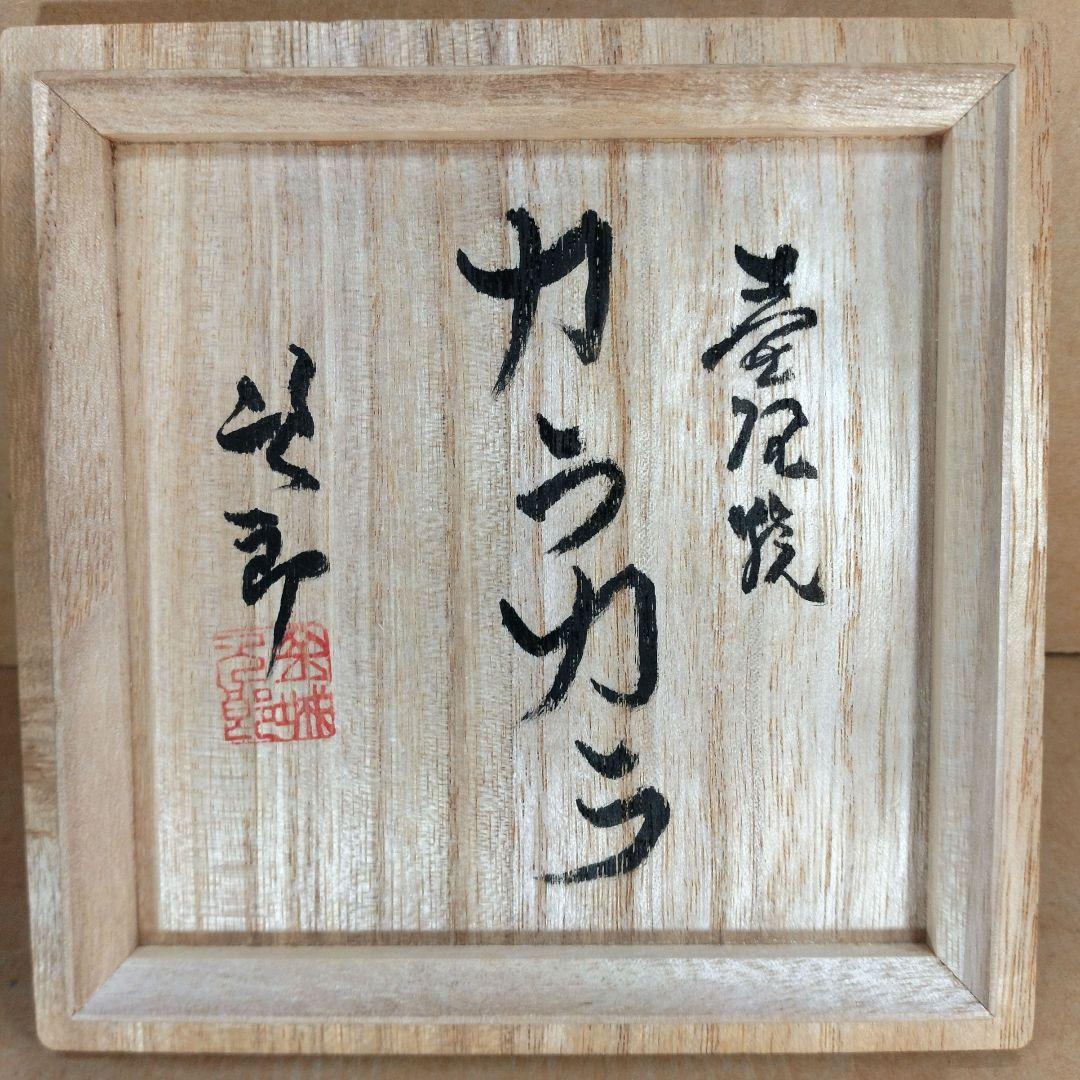 壺屋焼
カラカラ
郎